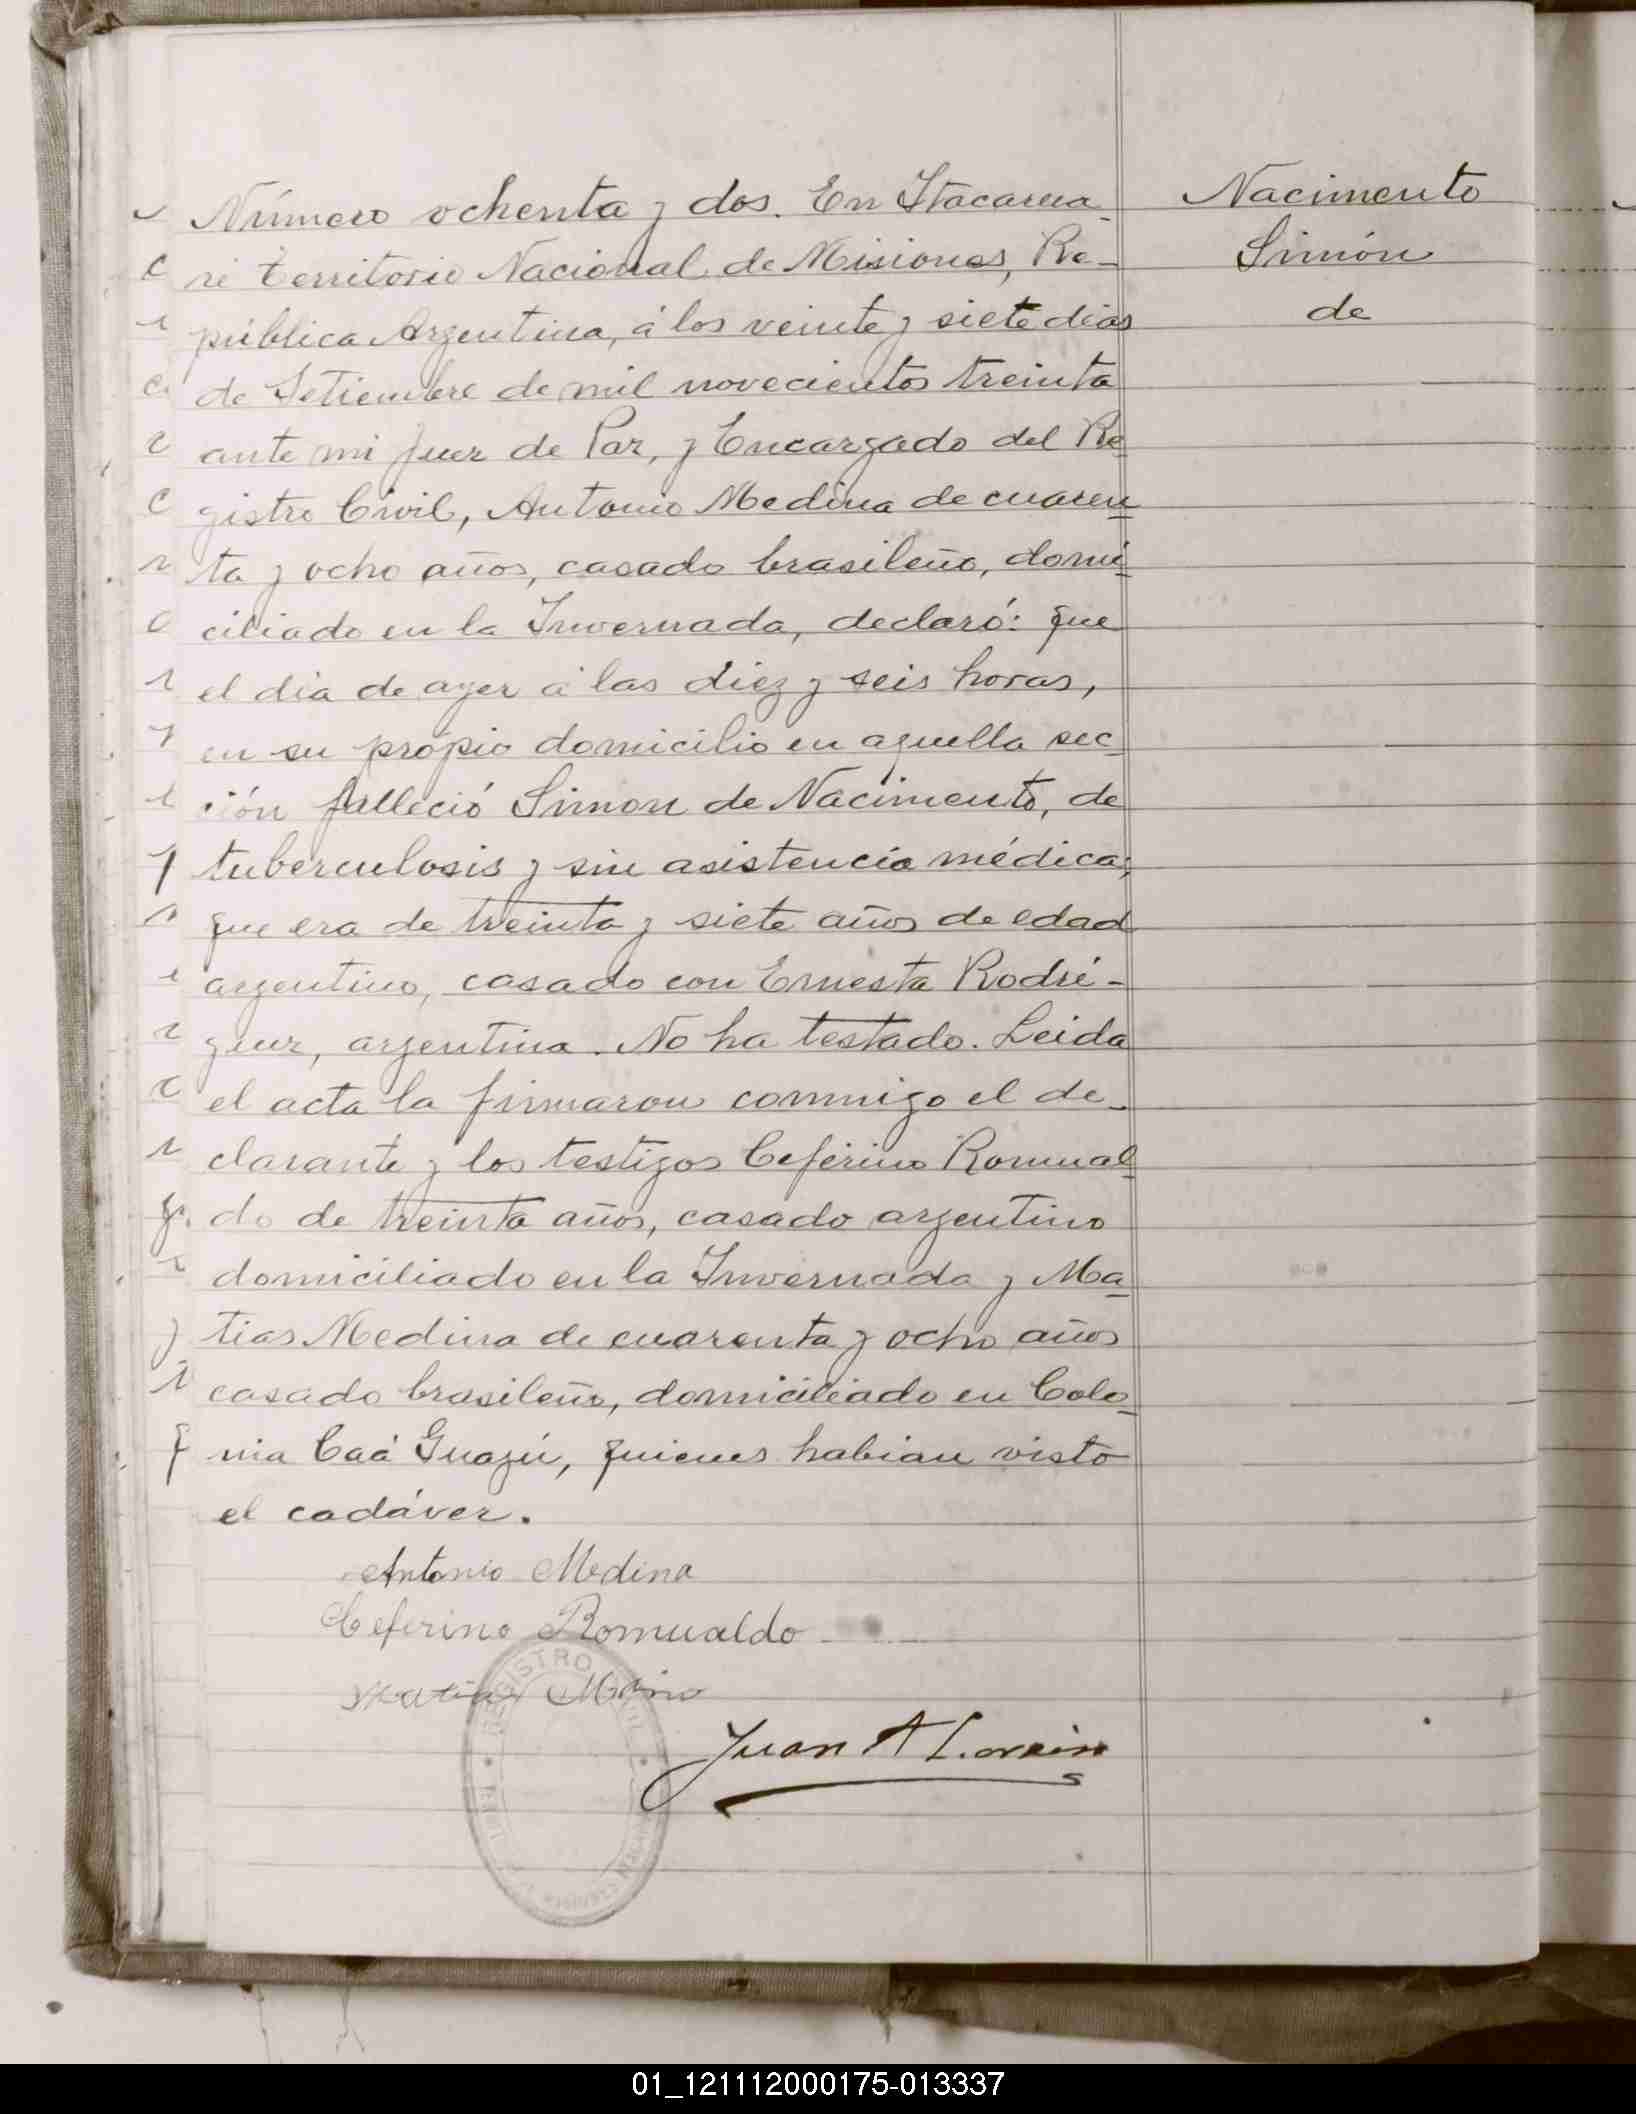 Número ochenta y dos. En Itacarua
ré territorio Nacional de Misiones, Re-
pública Argentina, á los veinte y siete dias
de Setiembre de mil novecientos treinta
ante mi Juez de Paz, y Encargado del Re
gistro Civil, Antonio Medina de cuaren
ta y ocho años, casado brasileño, domi
ciliado en la Invernada, declaró: que
el dia de ayer á las diez y seis horas,
en su própio domicilio en aquella sec
ción falleció Simon de Nacimento, de
tuberculosis y sin asistencia médica,
que era de treinta y siete años de edad
argentino, casado con Ernesta Rodrí-
guez, argentina. No ha testado. Leida
el acta la firmaron conmigo el de-
clarante y los testigos Ceferino Romual
do de treinta años, casado argentino
domiciliado en la Invernada y Ma
tias Medina de cuarenta y ocho años
casado brasileño, domiciliado en Colo
nia Caá Guazú, quienes habian visto
el cadáver.
Antonio Medina
Ceferino Romualdo
Matias
Juan A
REGISTRO CIVIL
Nacimento
Simón
de
01_121112000175-013337